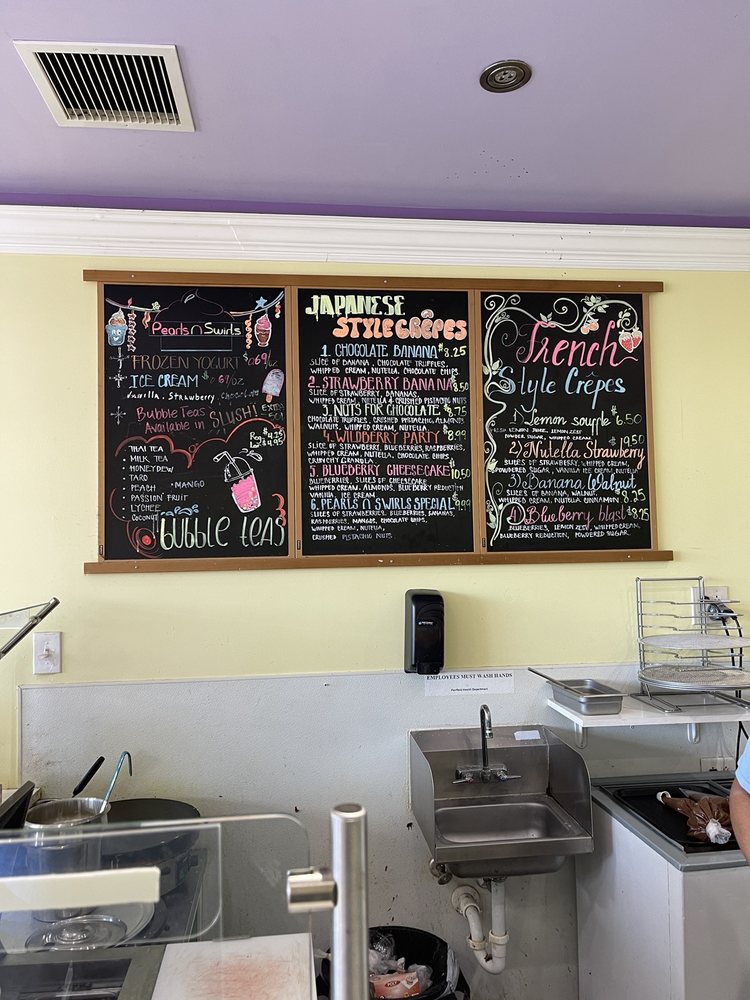 Pearls n Swirls
FROZEN YOGURT $0.69/oz
ICE CREAM $0.69/oz
Vanilla, Strawberry, Chocolate
Bubble Teas
Available in SLUSH!
EXTRA
50¢
Reg $4.25
Lg $4.95
THAI TEA
MILK TEA
HONEYDEW
TARO
PEACH
MANGO
PASSION FRUIT
LYCHEE
COCONUT
BUBBLE TEAS
JAPANESE
STYLE CRÊPES
1. CHOCOLATE BANANA $8.25
SLICE OF BANANA, CHOCOLATE TRUFFLES,
WHIPPED CREAM, NUTELLA, CHOCOLATE CHIPS.
2. STRAWBERRY BANANA $8.50
SLICE OF STRAWBERRY, BANANAS,
WHIPPED CREAM, NUTELLA & CRUSHED PISTACHIO NUTS
3. NUTS FOR CHOCOLATE $8.75
CHOCOLATE TRUFFLES, CRUSHED PISTACHIO, ALMONDS
WALNUTS, WHIPPED CREAM, NUTELLA.
4. WILDBERRY PARTY $8.99
SLICE OF STRAWBERRY, BLUEBERRIES, RASPBERRIES,
WHIPPED CREAM, NUTELLA, CHOCOLATE CHIPS
CRUNCHY GRANOLA
5. BLUEBERRY CHEESECAKE $10.50
BLUEBERRIES, SLICES OF CHEESECAKE
WHIPPED CREAM, ALMONDS, BLUEBERRY REDUCTION
VANILLA ICE CREAM
6. PEARLS N SWIRLS SPECIAL $9.99
SLICES OF STRAWBERRIES, BLUEBERRIES, BANANAS,
RASPBERRIES, MANGOS, CHOCOLATE CHIPS,
WHIPPED CREAM, NUTELLA,
CRUSHED PISTACHIO NUTS.
French
Style Crêpes
1) Lemon souffle $6.50
LEMON JUICE, LEMON ZEST
POWDER SUGAR, WHIPPED CREAM
2) Nutella Strawberry $9.50
SLICES OF STRAWBERRY, WHIPPED CREAM,
POWDERED SUGAR, VANILLA ICE CREAM, NUTELLA
3) Banana Walnut $8.25
SLICES OF BANANA, WALNUT,
WHIPPED CREAM, NUTELLA, CINNAMON
4) Blueberry blast $8.25
BLUEBERRIES, LEMON ZEST, WHIPPED CREAM,
BLUEBERRY REDUCTION, POWDERED SUGAR.
EMPLOYEES MUST WASH HANDS
Fairfield Health Department